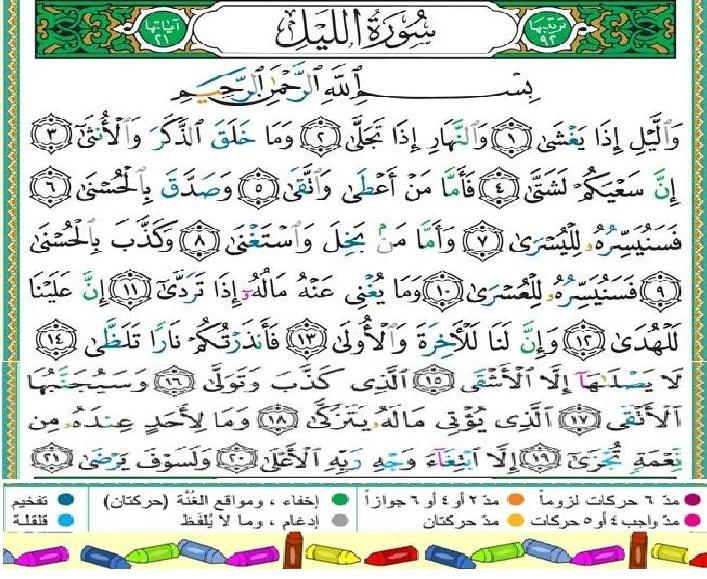 ترتيبها ٩٢ سُورَةُ اللَّيْلِ آياتها ٢١
بِسْمِ اللَّهِ الرَّحْمَٰنِ الرَّحِيمِ
وَاللَّيْلِ إِذَا يَغْشَىٰ ١ وَالنَّهَارِ إِذَا تَجَلَّىٰ ٢ وَمَا خَلَقَ الذَّكَرَ وَالْأُنثَىٰ ٣
إِنَّ سَعْيَكُمْ لَشَتَّىٰ ٤ فَأَمَّا مَنْ أَعْطَىٰ وَاتَّقَىٰ ٥ وَصَدَّقَ بِالْحُسْنَىٰ ٦
فَسَنُيَسِّرُهُۥ لِلْيُسْرَىٰ ٧ وَأَمَّا مَنۢ بَخِلَ وَاسْتَغْنَىٰ ٨ وَكَذَّبَ بِالْحُسْنَىٰ
٩ فَسَنُيَسِّرُهُۥ لِلْعُسْرَىٰ ١٠ وَمَا يُغْنِي عَنْهُ مَالُهُۥٓ إِذَا تَرَدَّىٰٓ ١١ إِنَّ عَلَيْنَا
لَلْهُدَىٰ ١٢ وَإِنَّ لَنَا لَلْآخِرَةَ وَالْأُولَىٰ ١٣ فَأَنذَرْتُكُمْ نَارًا تَلَظَّىٰ ١٤
لَا يَصْلَىٰهَآ إِلَّا الْأَشْقَى ١٥ الَّذِي كَذَّبَ وَتَوَلَّىٰ ١٦ وَسَيُجَنَّبُهَا
الْأَتْقَى ١٧ الَّذِي يُؤْتِي مَالَهُۥ يَتَزَكَّىٰ ١٨ وَمَا لِأَحَدٍ عِندَهُۥ مِن
نِّعْمَةٍ تُجْزَىٰٓ ١٩ إِلَّا ابْتِغَآءَ وَجْهِ رَبِّهِ الْأَعْلَىٰ ٢٠ وَلَسَوْفَ يَرْضَىٰ ٢١
مدّ ٦ حركات لزوماً مدّ ٢ أو ٤ أو ٦ جوازاً إخفاء ، ومواقع الغُنَّة (حركتان) تفخيم
مدّ واجب ٤ أو ٥ حركات مدّ حركتان إدغام ، وما لا يُلفَظ قلقلة